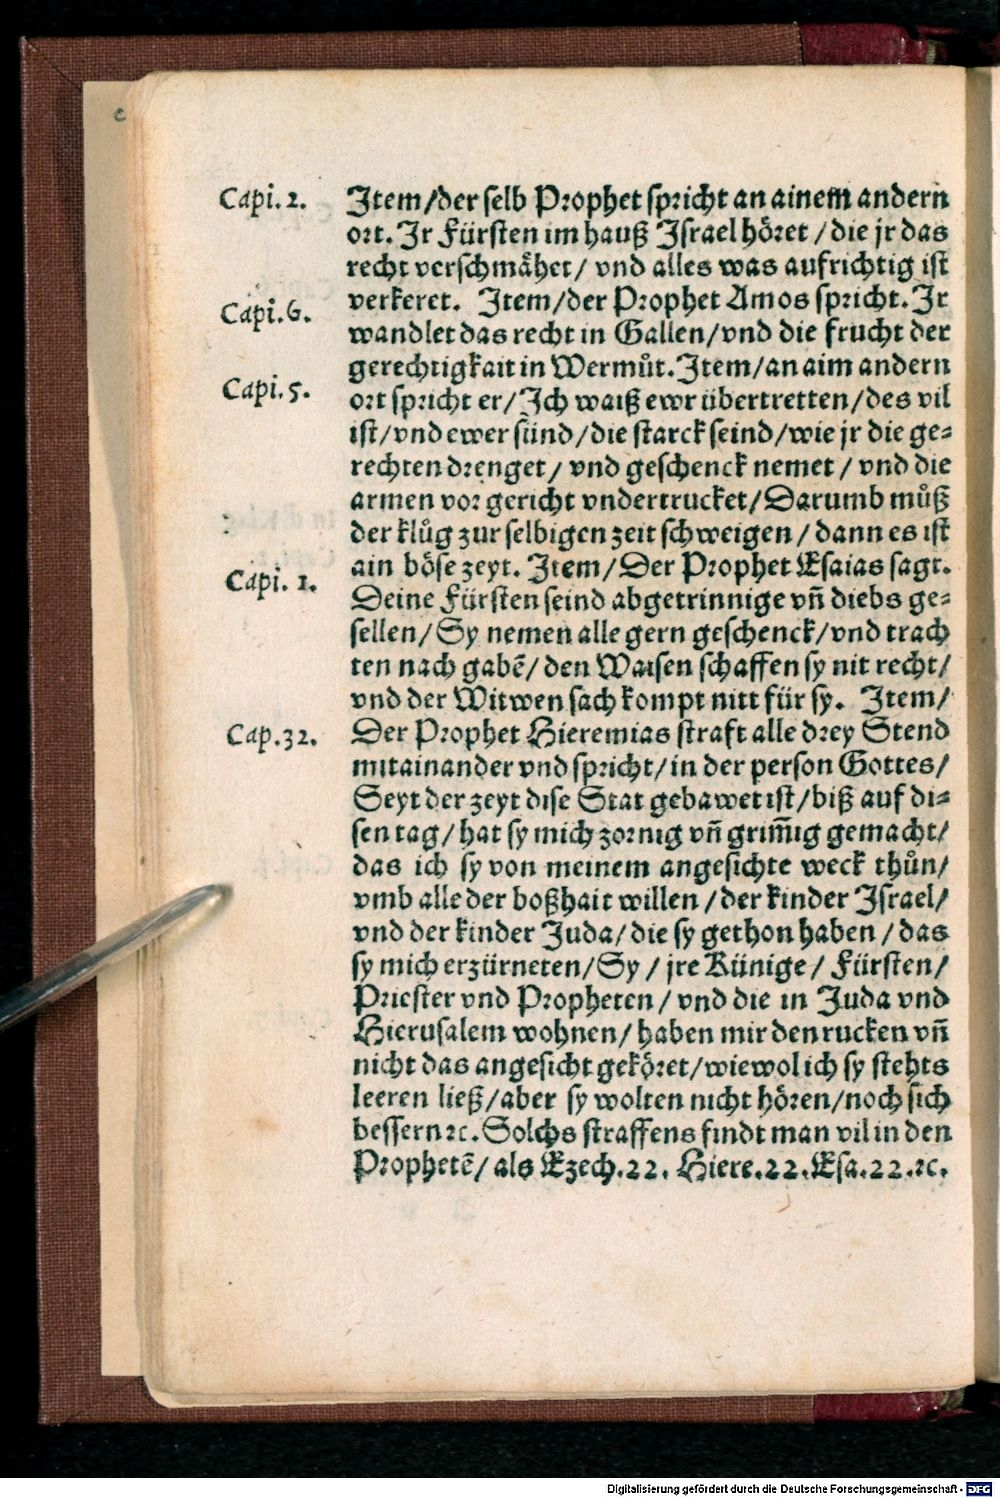 Capi. 2. Item/der selb Prophet spricht an ainem andern
ort. Ir Fürsten im hauß Israel hoͤret /die jr das
recht verschmaͤhet/ vnd alles was aufrichtig ist
Capi.6. verkeret. Item/der Prophet Amos spricht. Ir
wandlet das recht in Gallen/vnd die frucht der
gerechtigkait in Wermuͦt. Item/an aim andern
Capi.5. ort spricht er/ Ich waiß ewr übertretten/des vil
ist/vnd ewer sünd/die starck seind/wie jr die ge⸗
rechten drenget/ vnd geschenck nemet/ vnd die
armen vor gericht vndertrucket/Darumb muͦß
der kluͦg zur selbigen zeit schweigen/ dann es ist
ain boͤse zeyt. Item/ Der Prophet Esaias sagt.
Capi. 1. Deine Fürsten seind abgetrinnige vñ diebs ge⸗
sellen/ Sy nemen alle gern geschenck/vnd trach
ten nach gabē/ den Waisen schaffen sy nit recht/
vnd der Witwen sach kompt nitt für sy. Item/
Cap.32. Der Prophet Hieremias straft alle drey Stend
mitainander vnd spricht/ in der person Gottes/
Seyt der zeyt dise Stat gebawet ist/biß auf di⸗
sen tag/ hat sy mich zornig vñ grim̄ig gemacht/
das ich sy von meinem angesichte weck thuͦn/
vmb alle der boßhait willen /der kinder Israel/
vnd der kinder Juda/ die sy gethon haben /das
sy mich erzürneten/Sy / jre Künige/ Fürsten/
Priester vnd Propheten/ vnd die in Juda vnd
Hierusalem wohnen/ haben mir den rucken vñ
nicht das angesicht gekoͤret/wiewol ich sy stehts
leeren ließ/aber sy wolten nicht hoͤren/noch sich
bessern ꝛc. Solchs straffens findt man vil in den
Prophetē/ als Ezech.22. Hiere.22. Esa.22.ꝛc.
Digitalisierung gefördert durch die Deutsche Forschungsgemeinschaft - DFG